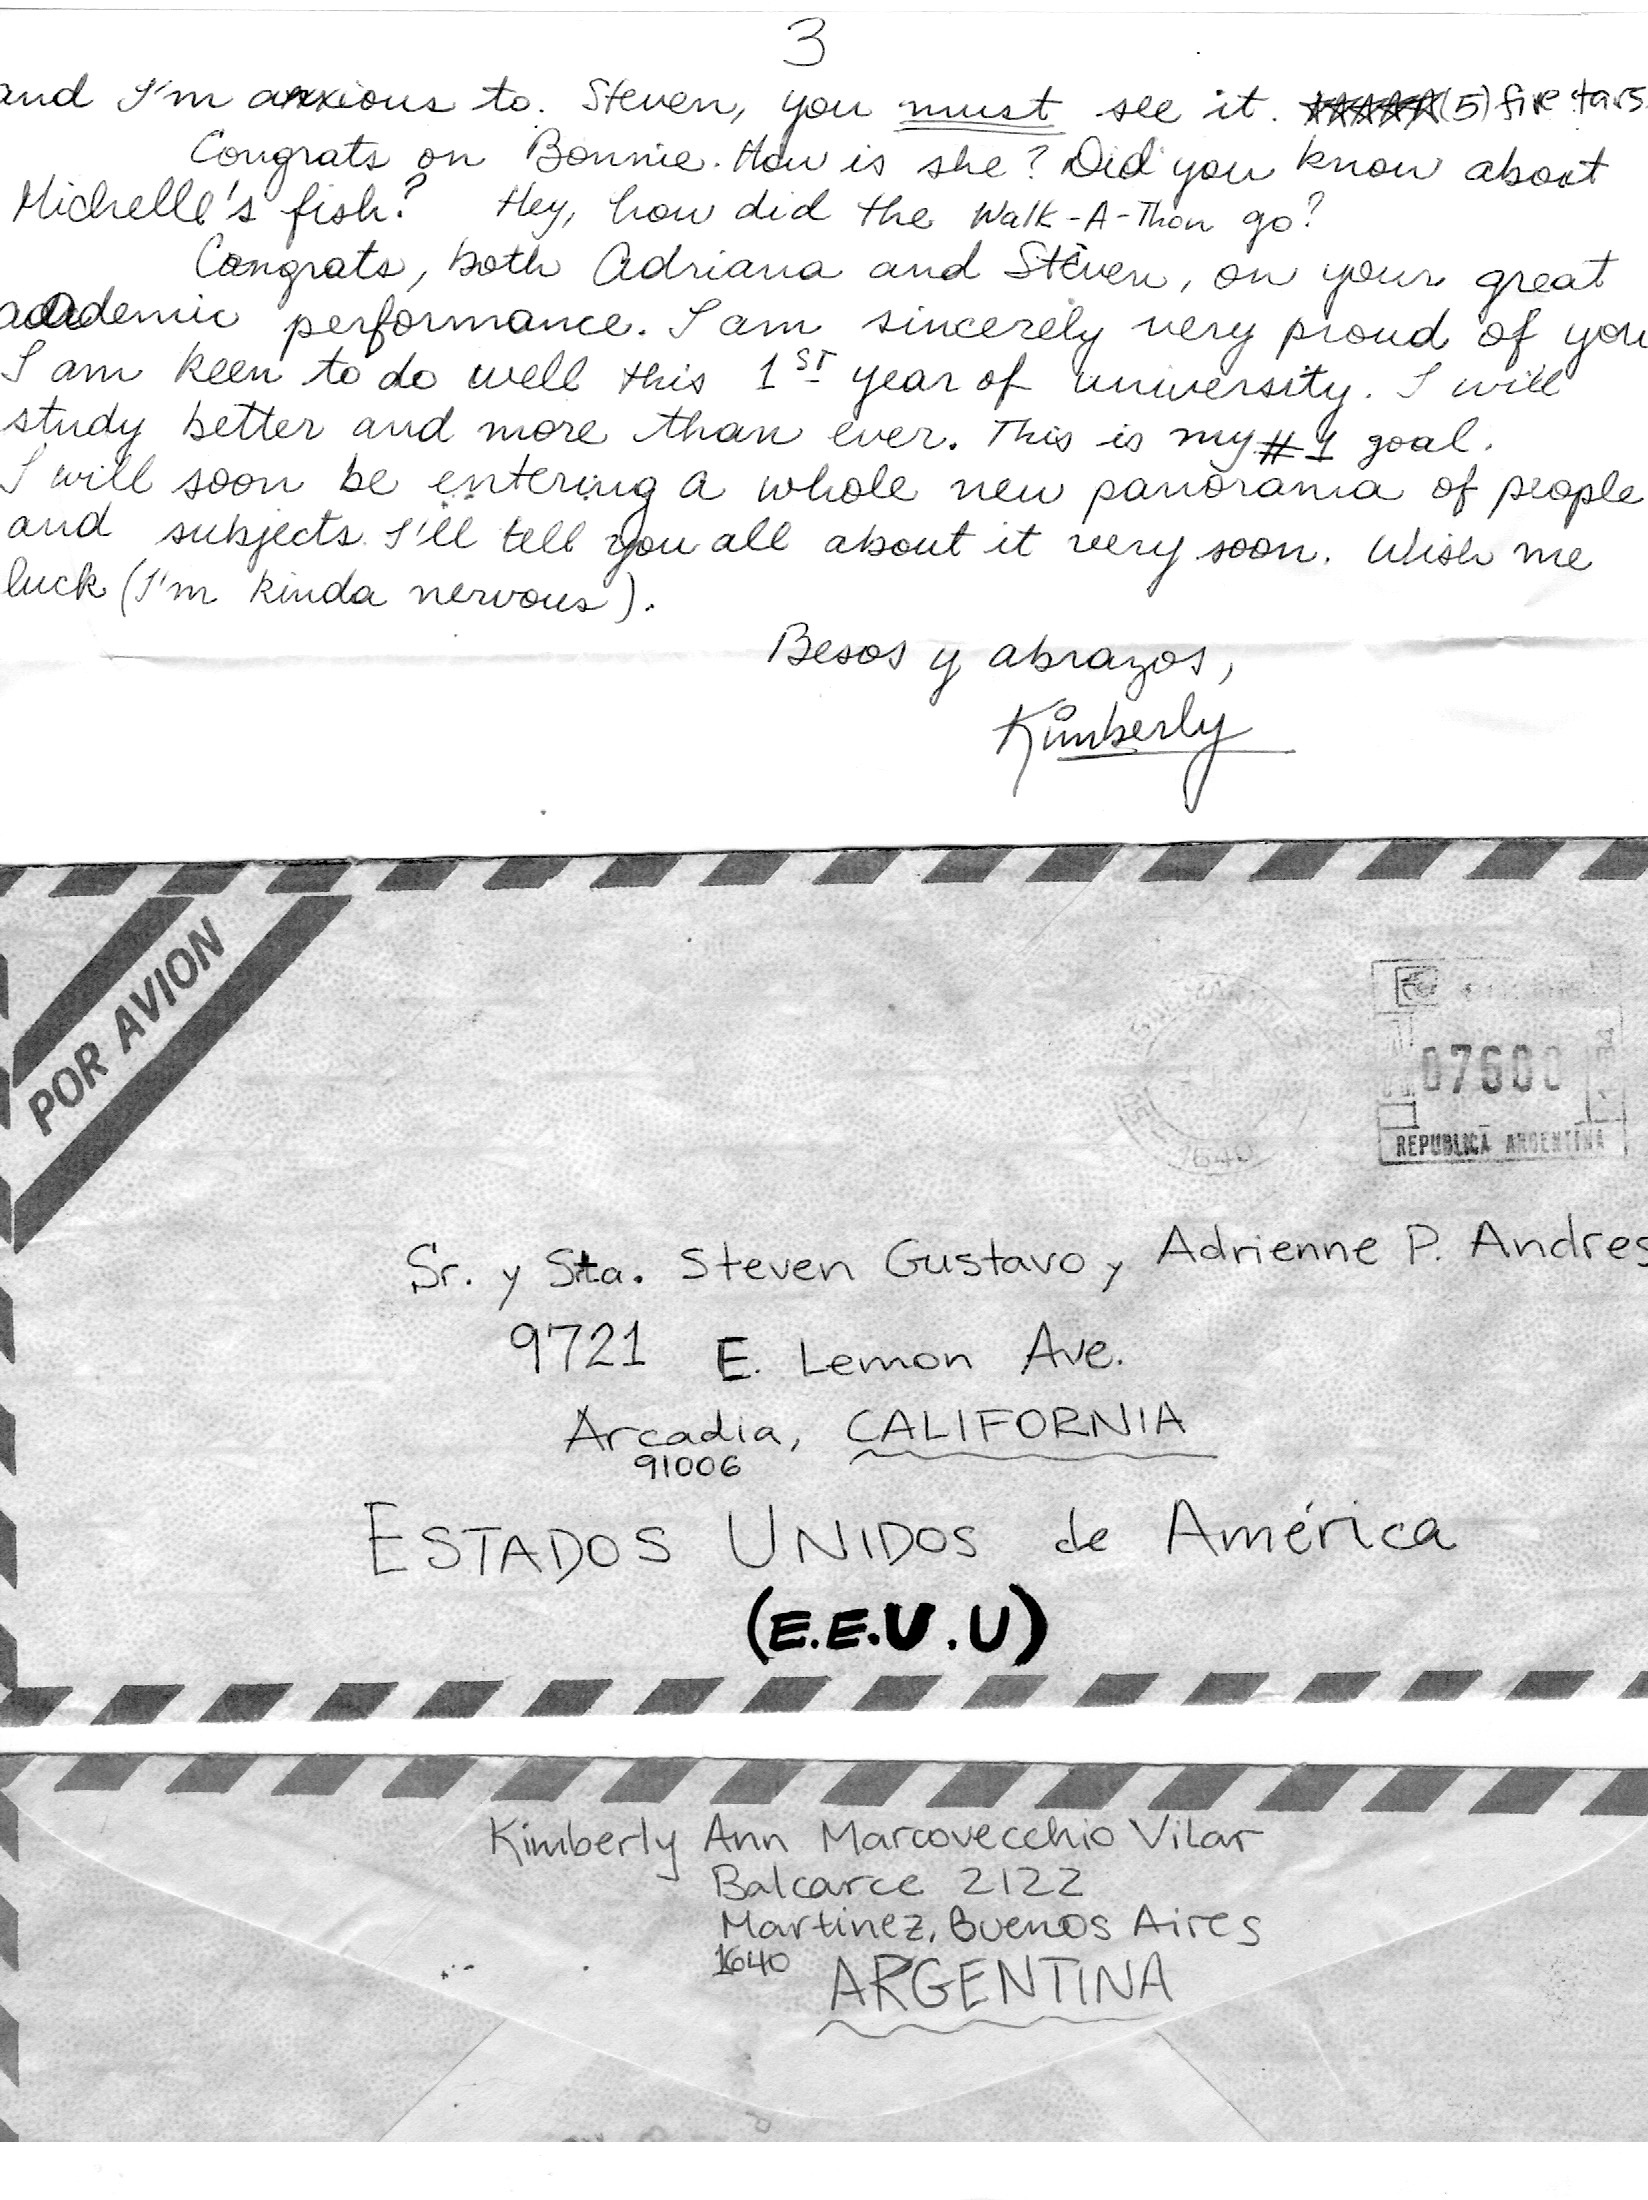 3
and I'm anxious to. Steven, you must see it. ★★★★★(5) five tars
Congrats on Bonnie. How is she? Did you know about
Michelle's fish? Hey, how did the Walk-A-Thon go?
Congrats, both Adriana and Steven, on your great
academic performance. I am sincerely very proud of you
I am keen to do well this 1ST year of university. I will
study better and more than ever. This is my #1 goal.
I will soon be entering a whole new panorama of people
and subjects. I'll tell you all about it very soon. Wish me
luck (I'm kinda nervous).
Besos y abrazos,
Kimberly
POR AVION
07600
REPUBLICA ARGENTINA
1640
Sr. y Sta. Steven Gustavo y Adrienne P. Andres
9721 E. Lemon Ave.
Arcadia, CALIFORNIA
91006
ESTADOS UNIDOS de América
(E.E.U.U)
Kimberly Ann Marcovecchio Vilar
Balcarce 2122
Martinez, Buenos Aires
1640 ARGENTINA